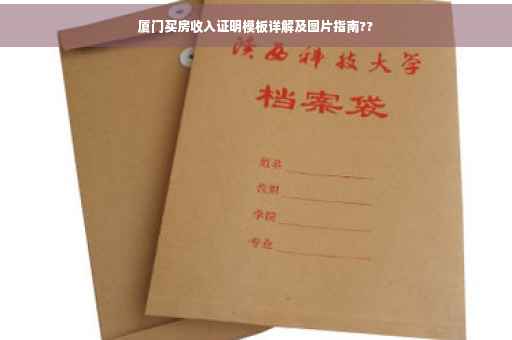 厦门买房收入证明模板详解及图片指南??
陕西科技大学
档案袋
学院
专业